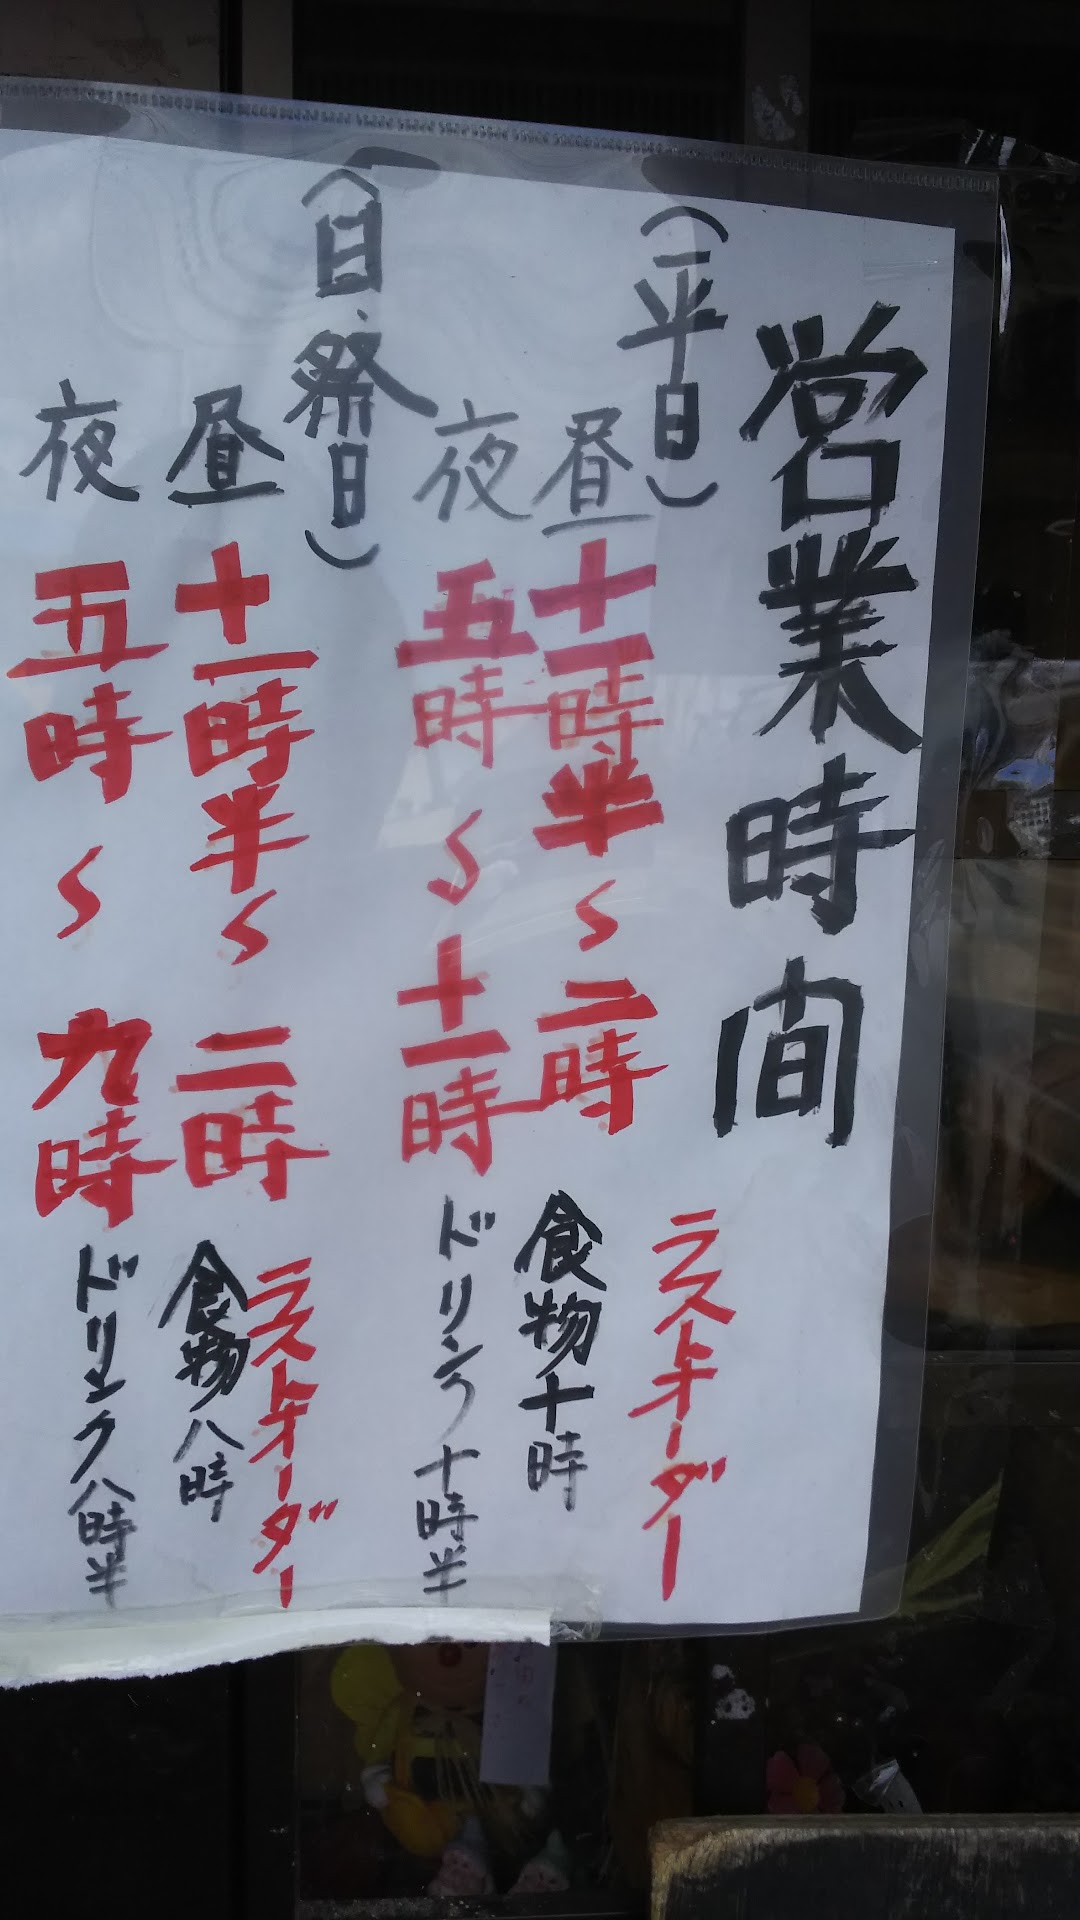 営業時間
(平日)
昼 十一時半〜二時
夜 五時〜十一時
ラストオーダー
食物十時
ドリンク十時半
(日、祭日)
昼 十一時半〜二時
夜 五時〜九時
ラストオーダー
食物八時
ドリンク八時半